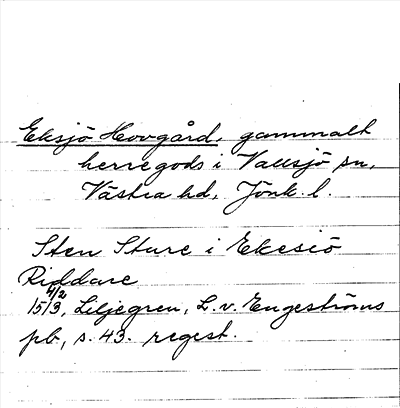 Eksjö Hovgård, gammalt
herregods i Vallsjö sn,
Västra hd, Jönk. l.
Sten Sture i Ekesiö
Riddare
4/2
15/3, Liljegren, L. v. Engeströms
pb, s. 43. regest.